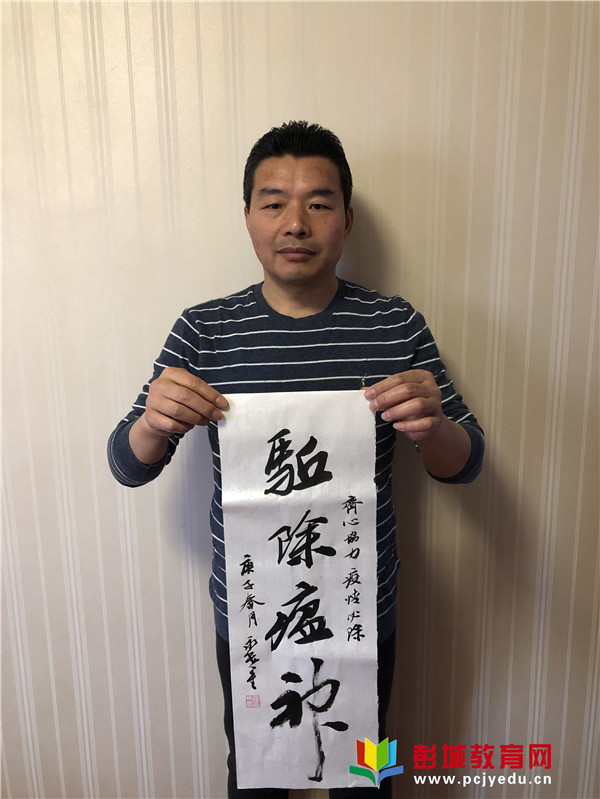 齊心協力 疫情必除
駈除瘟神
庚子春月
彭城教育网
www.pcjyedu.cn